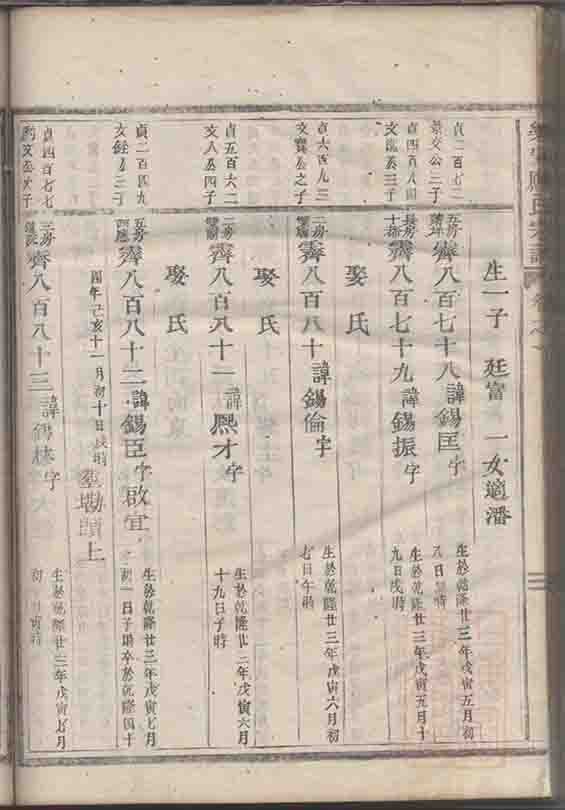 生一子 廷富 一女適潘
貞二百七二
景文公三子
五房
齊八百七十八諱錫匡字
生於乾隆廿三年戊寅五月初
八日 時
貞四百八四
文 公三子
長房
齊八百七十九諱錫振字
生於乾隆廿三年戊寅五月十
九日戌時
娶氏
貞六百九三
文寶公之子
二房
齊八百八十諱錫倫字
生於乾隆廿三年戊寅六月初
七日午時
娶氏
貞五百六二
文人公四子
二房
齊八百八十一諱熙才字
生於乾隆廿三年戊寅六月
十九日子時
娶氏
貞二百四九
文 公三子
五房
齊八百八十二諱錫臣字啟宜
生於乾隆廿三年戊寅七月
初一日子時卒於乾隆四十
四年己亥十一月初十日戌時
墓坳頭上
貞四百七七
文公次子
三房
齊八百八十三諱錫 字
生於乾隆廿三年戊寅七月
初 日寅時